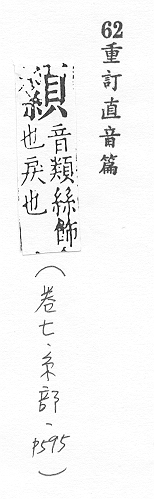 62重訂直音篇
音類絲飾
也戾也
(卷七、糸部、p595)